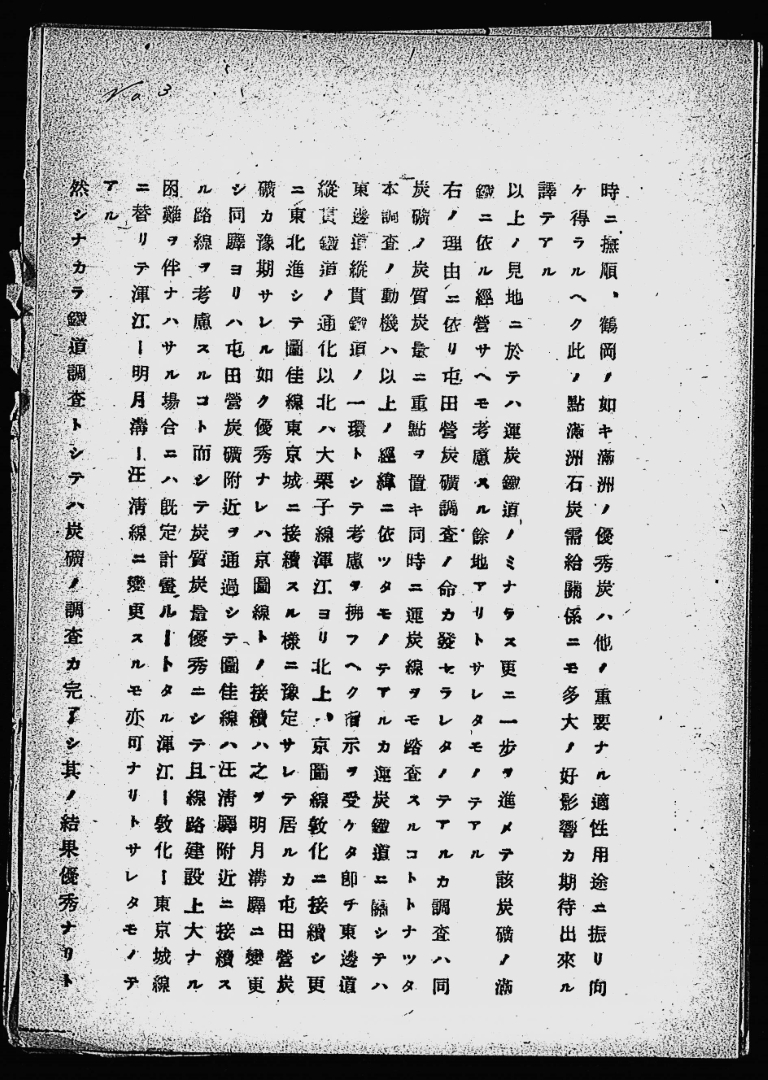 No 3
時ニ撫順、鶴岡ノ如キ滿洲ノ優秀炭ハ他ノ重要ナル適性用途ニ振リ向
ケ得ラルヘク此ノ點滿洲石炭需給關係ニモ多大ノ好影響カ期待出來ル
譯テアル
以上ノ見地ニ於テハ運炭鐵道ノミナラス更ニ一步ヲ進メテ該炭礦ノ滿
鐵ニ依ル經營サヘモ考慮スル餘地アリトサレタモノテアル
右ノ理由ニ依リ屯田營炭礦調査ノ命カ發セラレタノテアルカ調査ハ同
炭礦ノ炭質炭量ニ重點ヲ置キ同時ニ運炭線ヲモ踏査スルコトトナツタ
本調査ノ動機ハ以上ノ經緯ニ依ツタモノテアルカ運炭鐵道ニ關シテハ
東邊道縱貫鐵道ノ一環トシテ考慮ヲ拂フヘク指示ヲ受ケタ卽チ東邊道
縱貫鐵道ノ通化以北ハ大栗子線渾江ヨリ北上、京圖線敦化ニ接續シ更
ニ東北進シテ圖佳線東京城ニ接續スル樣ニ豫定サレテ居ルカ屯田營炭
礦カ豫期サレル如ク優秀ナレハ京圖線トノ接續ハ之ヲ明月溝驛ニ變更
シ同驛ヨリハ屯田營炭礦附近ヲ通過シテ圖佳線ハ汪淸驛附近ニ接續ス
ル路線ヲ考慮スルコト而シテ炭質炭量優秀ニシテ且線路建設上大ナル
困難ヲ伴ナハサル場合ニハ旣定計畫ルートタル渾江ー敦化ー東京城線
ニ替リテ渾江ー明月溝ー汪淸線ニ變更スルモ亦可ナリトサレタモノテ
アル
然シナカラ鐵道調査トシテハ炭礦ノ調査カ完了シ其ノ結果優秀ナリト